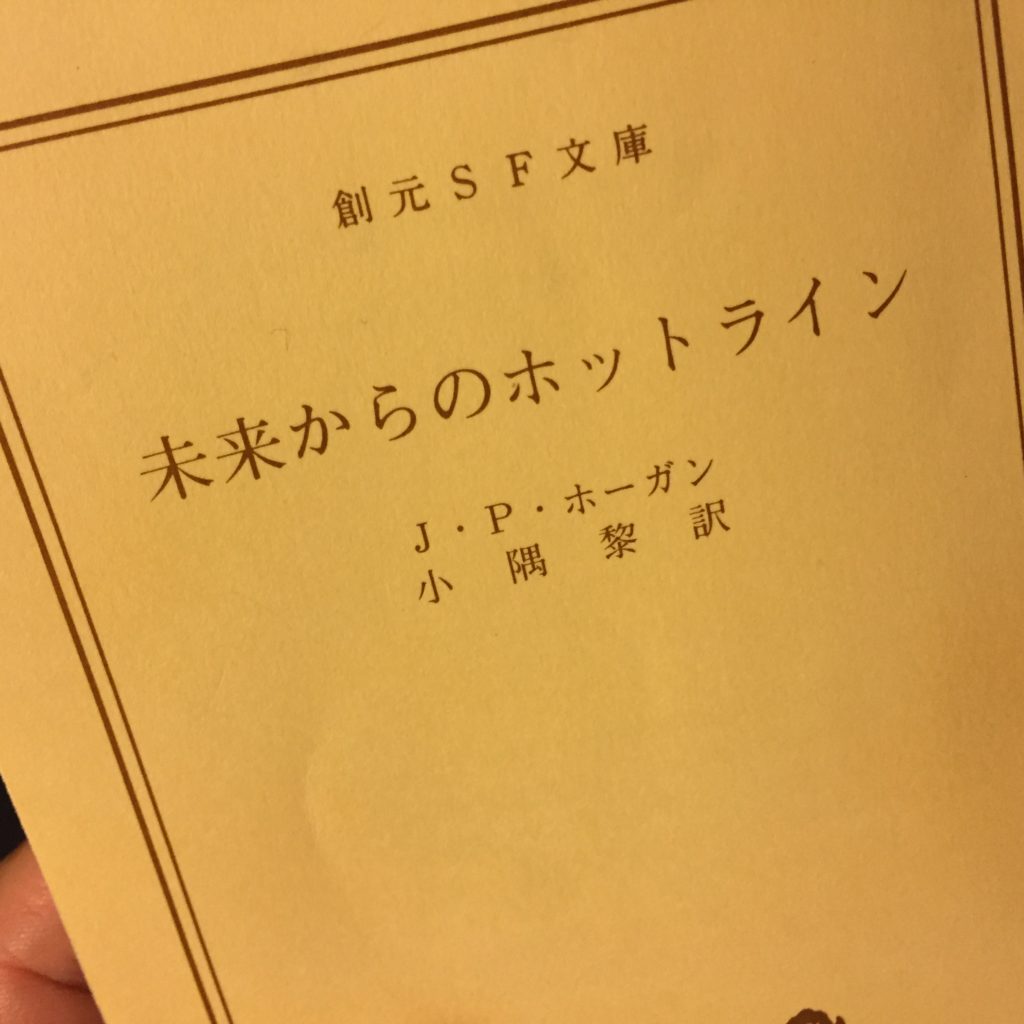 創元SF文庫
未来からのホットライン
J・P・ホーガン
小隅黎訳